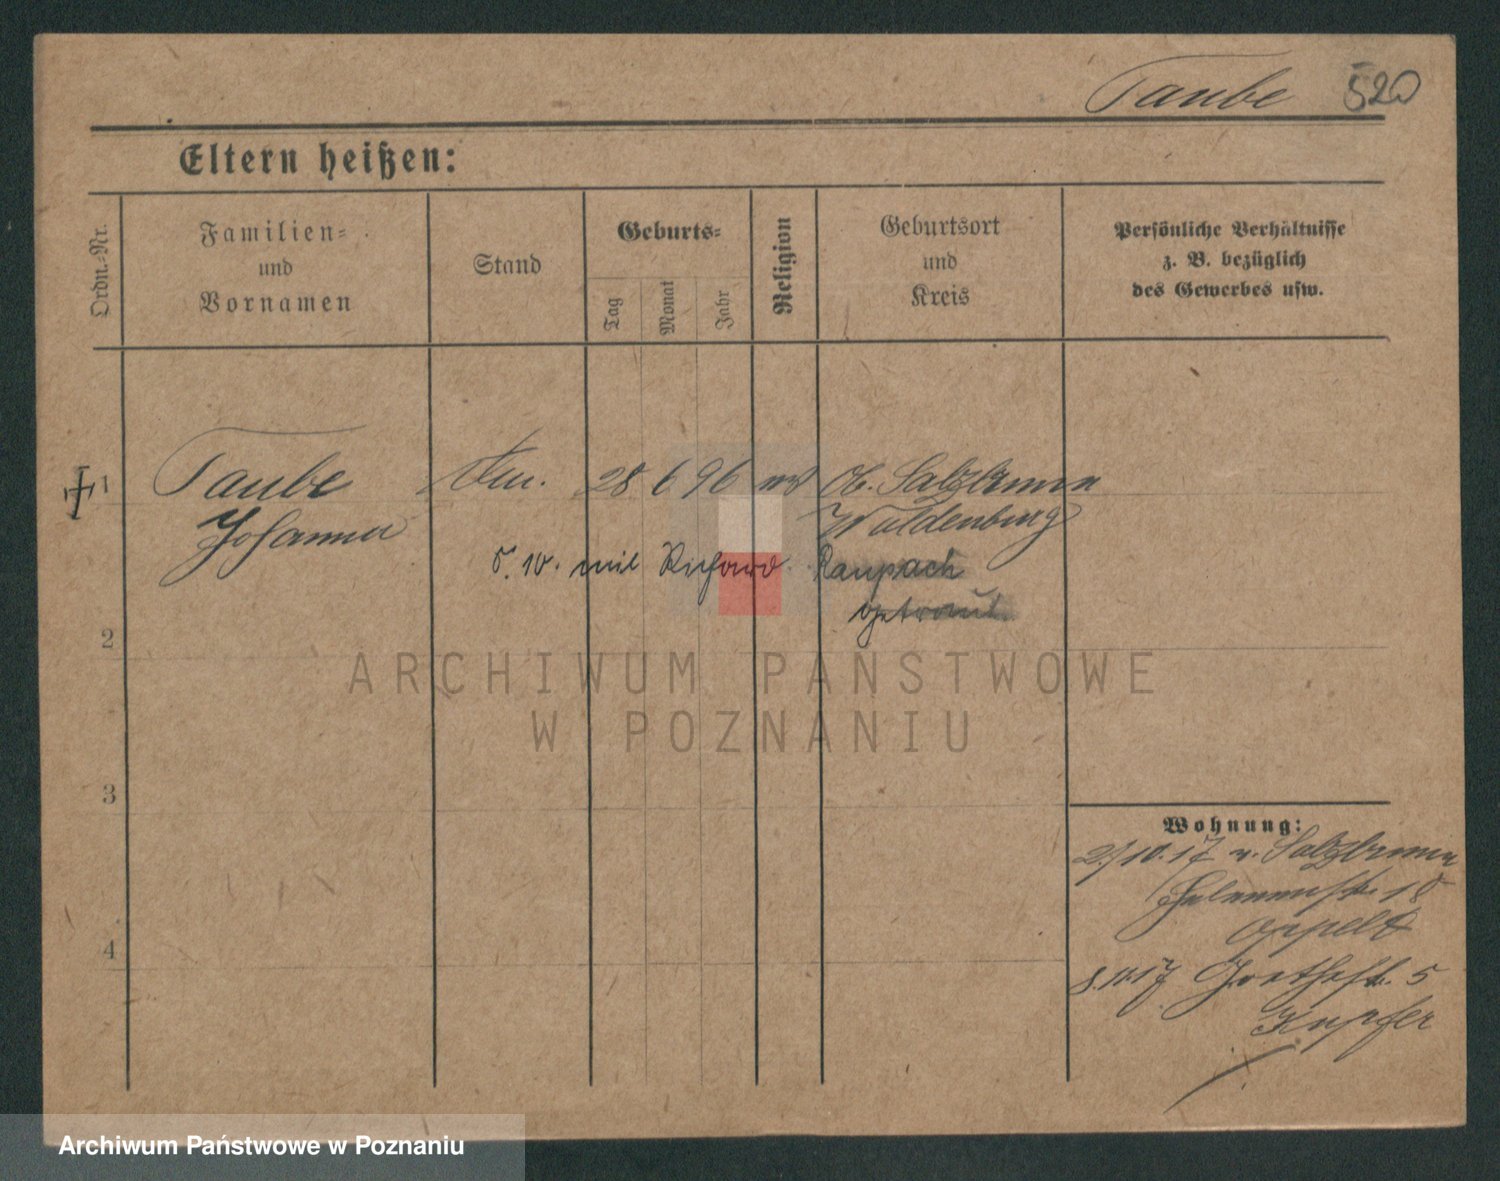 Taube 520
Eltern heißen:
Ordn.-Nr.
Familien-
und
Vornamen
Stand
Geburts-
Tag
Monat
Jahr
Religion
Geburtsort
und
Kreis
Persönliche Verhältnisse
z. B. bezüglich
des Gewerbes usw.
1 Taube 28 6 96 Ob. Salzbrunn
Johanna Waldenburg
10. mit Richard Raupach
getraut
2
3
4
Wohnung:
2/10.17 v. Salzbrunn
18
Oppelt
8.11.17 Goethestr. 5
Kupfer
ARCHIWUM PAŃSTWOWE
W POZNANIU
Archiwum Państwowe w Poznaniu